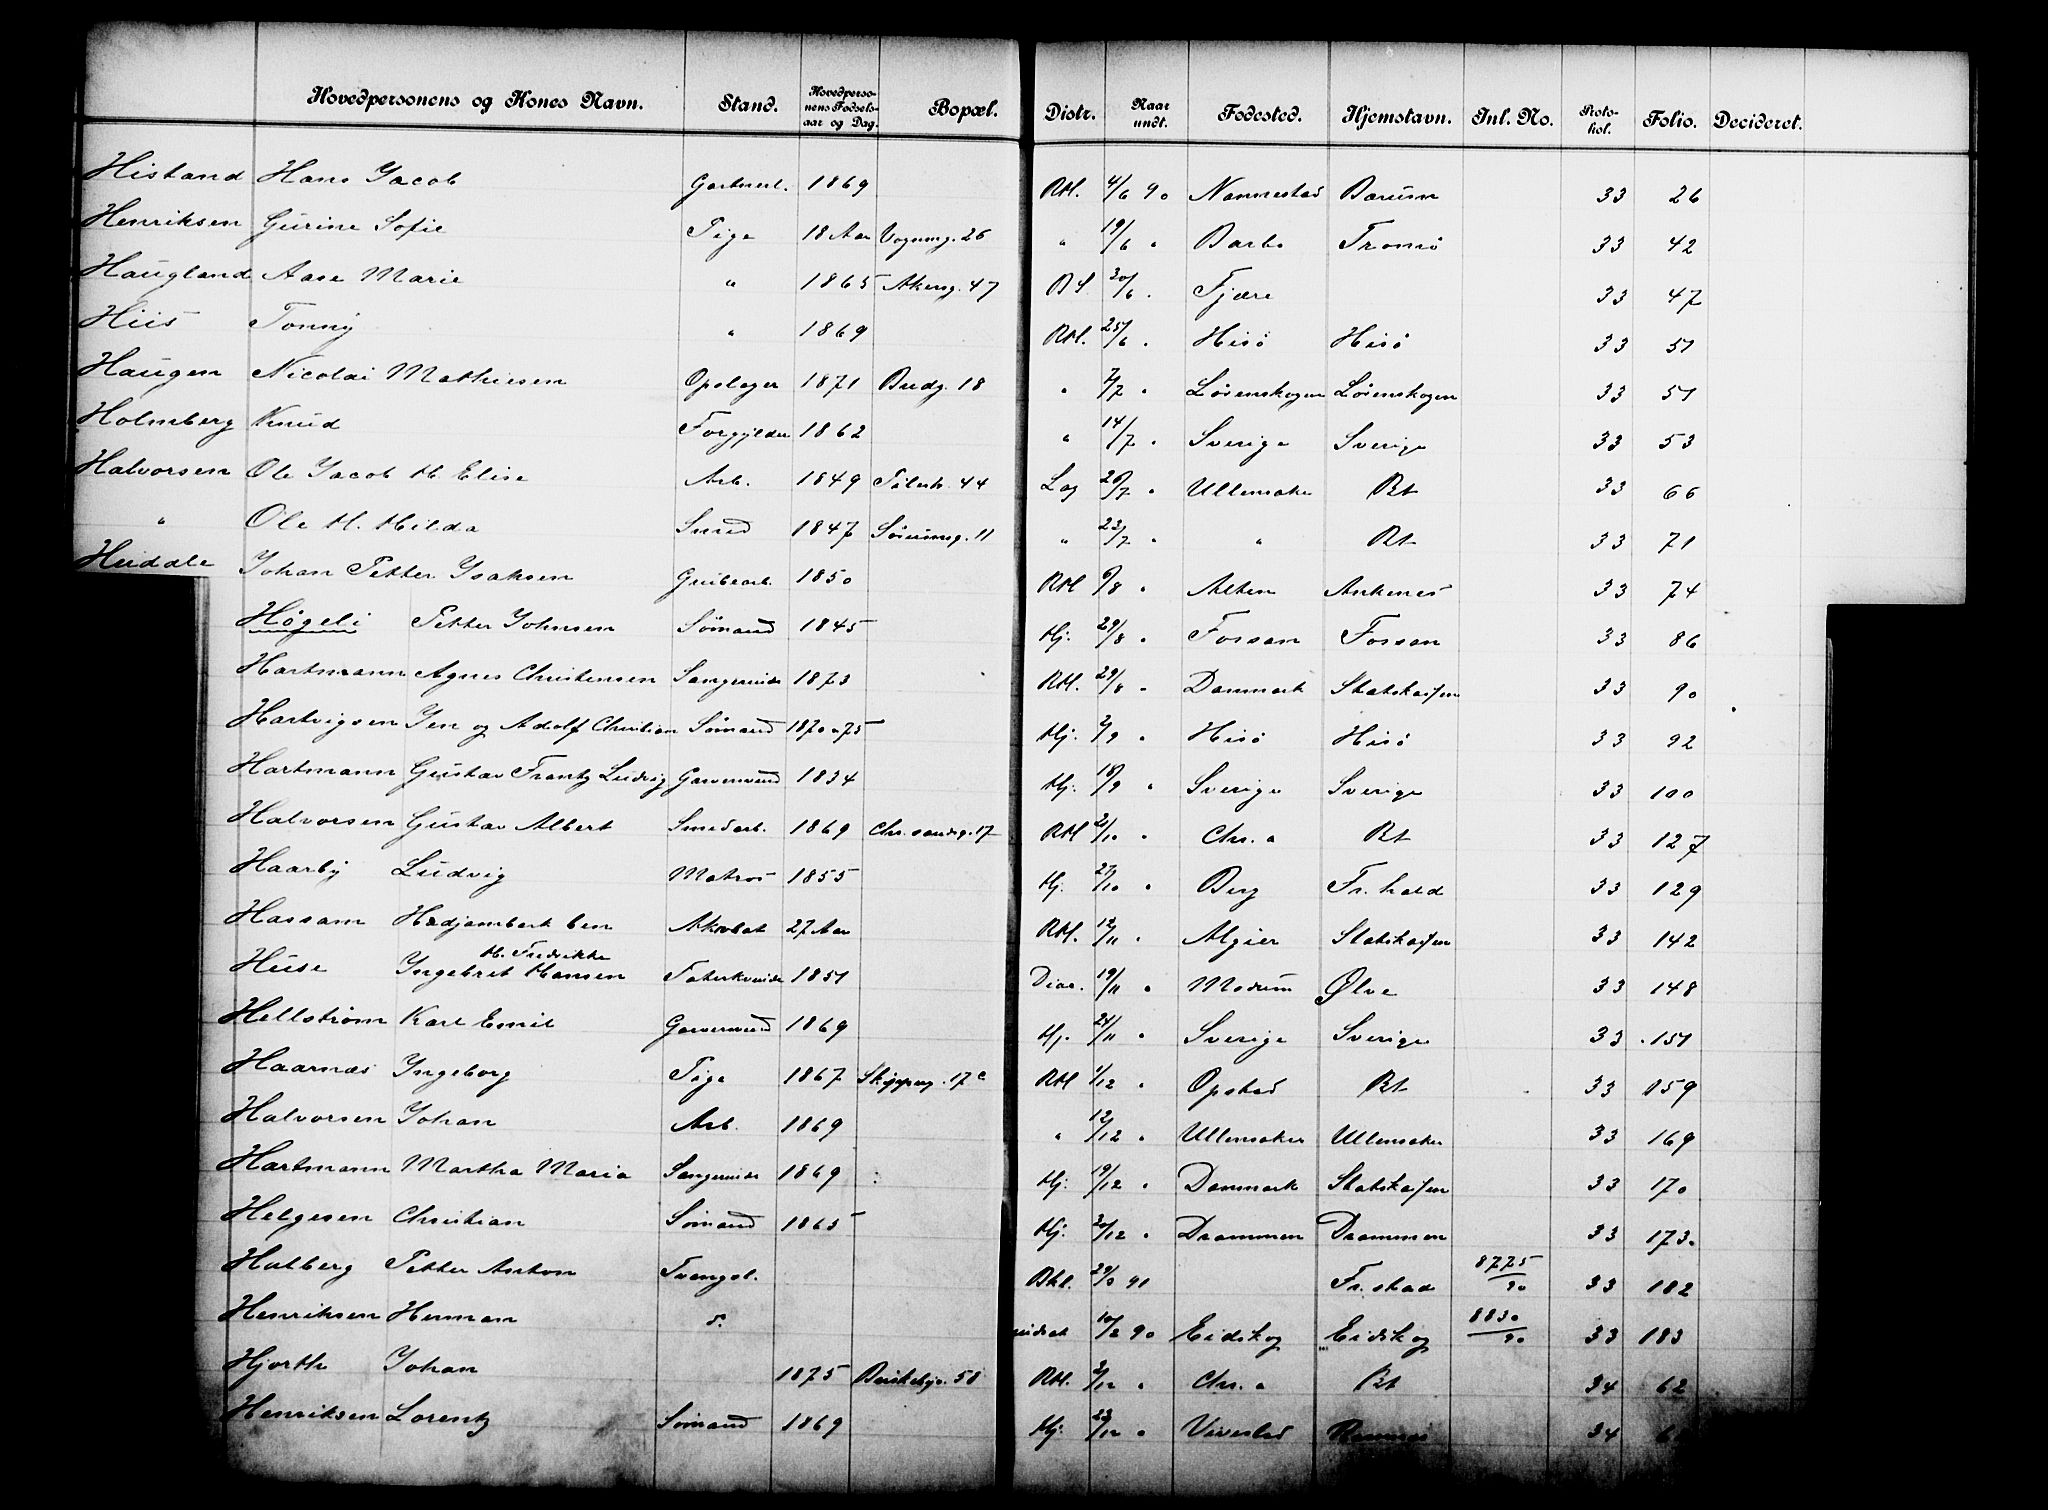 Hovedpersonens og Kones Navn. Stand. Hovedperso-nens Fødsels-aar og Dag. Bopæl. Distr. Naar undt. Fødested. Hjemstavn. Inl. No. Proto-kol. Folio. Decideret.
Histand Hans Jacob Gartnerl. 1869 RM. 4/6 90 Nannestad Bærum 33 26
Henriksen Gurine Sofie Pige 18 Aar Vognmg. 26 " 19/6 " Barbo Tromsö 33 42
Haugland Aase Marie " 1865 Akersg. 47 20/6 . Fjære 33 47
Hiis Tonny " 1869 RM. 25/6 . Hisö Hisö 33 51
Haugen Nicolai Mathiesen Opslager 1871 Bredg. 18 " 2/7 " Lörenskogen Lörenskogen 33 51
Holmberg Knud Forgylder 1862 " 14/7 " Sverige Sverige 33 53
Halvorsen Ole Jacob M. Elise Arb. 1849 Pilestr. 44 Lag 20/7 " Ullensaker Bt 33 66
" Ole M. Hilda Smed 1847 Sörumsg. 11 " 23/7 " " Bt 33 71
Heidale Johan Petter Isaksen Grubearb. 1850 RM 6/8 " Alten Ankenes 33 74
Högeli Petter Johnsen Sömand 1845 Hj. 29/8 " Forsan Forsan 33 86
Hartmann Agnes Christensen Sangerinde 1873 RM. 29/8 " Danmark Statskassen 33 90
Hartvigsen Jen og Adolf Christian Sömand 1870 " 75 Hj. 2/9 " Hisö Hisö 33 92
Hartmann Gustav Frantz Ludvig Garversvend 1834 Hj. 18/9 " Sverige Sverige 33 100
Halvorsen Gustav Albert Smedarb. 1869 Chr.sandsg. 17 RM 21/10 " Chr.a Bt 33 127
Haarby Ludvig Matros 1855 Hj. 27/10 " Berg Fr.hald 33 129
Hassam Hadjambark ben Akrobat 27 Aar RM. 12/11 " Algier Statskassen 33 142
M. Fredrikke
Huse Ingebret Hansen Taterkvinde 1851 19/11 " Modum Ølve 33 148
Hellström Karl Emil Garversvend 1869 Hj. 24/11 " Sverige Sverige 33 151
Haarnæs Ingeborg Pige 1867 Skipperg. 17c RM 1/12 " Opstad Bt 33 159
Halvorsen Johan Arb. 1869 " 12/12 " Ullensaker Ullensaker 33 169
Hartmann Martha Maria Sangerinde 1869 Hj. 19/12 " Danmark Statskassen 33 170
Helgesen Christian Sömand 1865 Hj. 20/12 " Drammen Drammen 33 173
Hatberg Petter Anton Tvangsl. 91 Fr.stad 8775/90 33 182
Henriksen Herman d. 10/2 90 Eidskog Eidskog 8830/90 33 183
Hjorth Johan 1875 58 RM. 2/12 " Chr.a Bt 34 62
Henriksen Lorentz Sömand 1869 Hj. 23/12 " Vivestad Ramnes 34